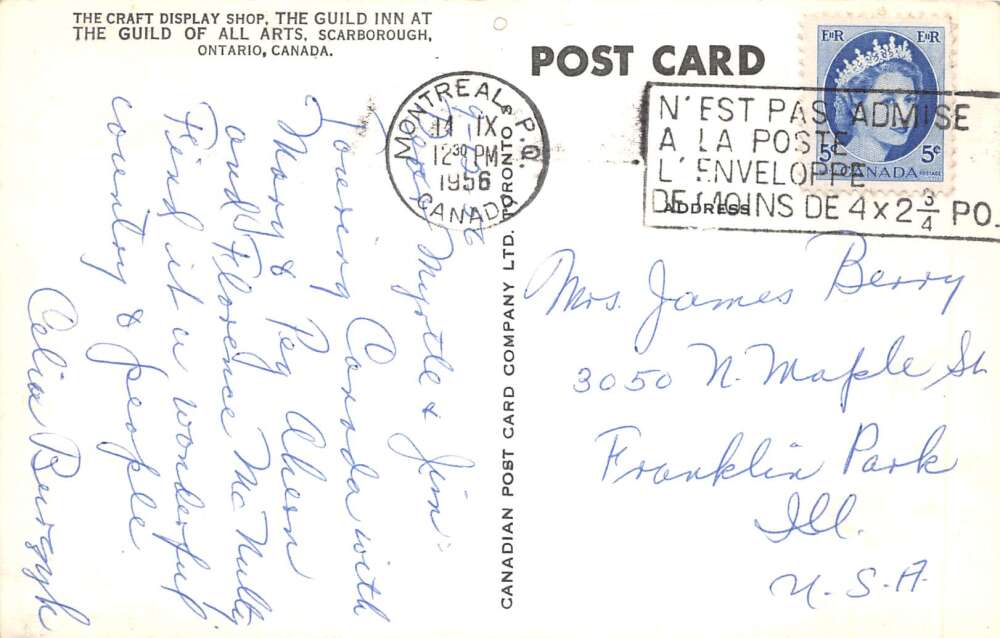 THE CRAFT DISPLAY SHOP, THE GUILD INN AT
THE GUILD OF ALL ARTS, SCARBOROUGH,
ONTARIO, CANADA.
Dear Myrtle & Jim:
Toering Canada with
Mary & Peg Ahern
and Florence McNulty
Find it a wonderful
country & people
Celia
CANADIAN POST CARD COMPANY LTD. TORONTO 8
POST CARD
MONTREAL P.Q.
14 IX
12 30 PM
1956
CANADA
N'EST PAS ADMISE
A LA POSTE
L'ENVELOPPE
DE MOINS DE 4 x 2 3/4 PO.
EIIR EIIR
5¢ 5¢
CANADA
POSTES POSTAGE
ADDRESS
Mrs. James Berry
3050 N. Maple St
Franklin Park
Ill.
U.S.A.